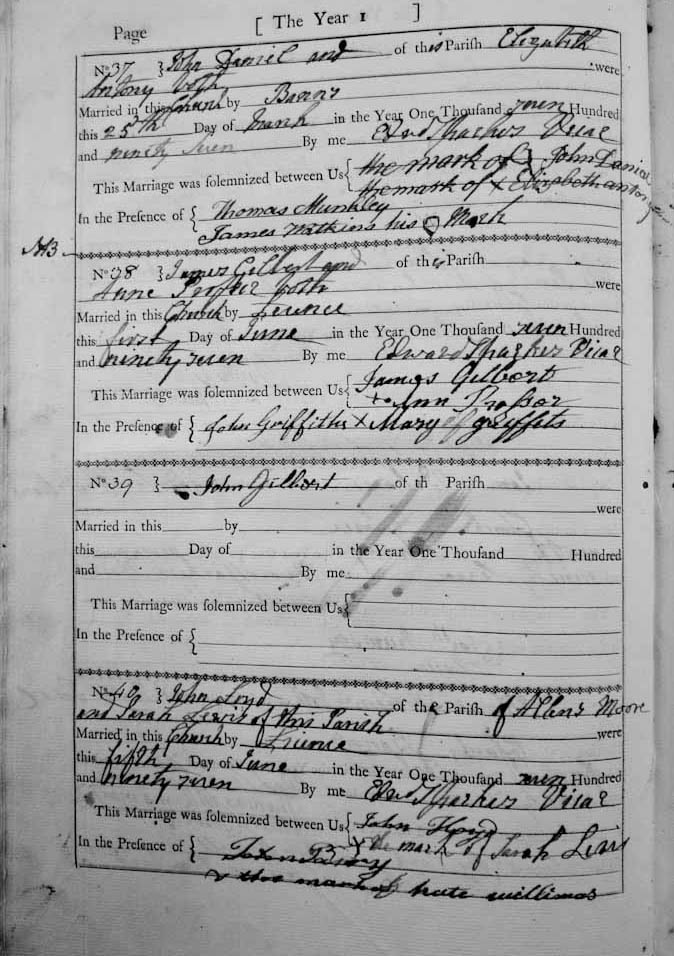 Page [ The Year 1 ]
No 37 } John Daniel and of this Parish Elizabeth
Antony both were
Married in this Church by Banns
this 25th Day of March in the Year One Thousand seven Hundred
and ninety seven By me Edwd Vicar
This Marriage was solemnized between Us { the mark of John Daniel
the mark of x Elizabeth antony
In the Presence of { Thomas Munkley
James Watkins his O Mark
No 38 } James Gilbert and of the Parish
Anne Prosser both were
Married in this Church by Licence
this first Day of June in the Year One Thousand seven Hundred
and ninety seven By me Edward Vicar
This Marriage was solemnized between Us { James Gilbert
Ann Prosser
In the Presence of { John Griffiths x Mary of griffits
No 39 } John Gilbert of th Parish
were
Married in this by
this Day of in the Year One Thousand Hundred
and By me
This Marriage was solemnized between Us {
In the Presence of {
No 40 } John Loyd of the Parish of Allens Moore
and Sarah Lewis of this Parish were
Married in this Church by Licence
this fifth Day of June in the Year One Thousand seven Hundred
and ninety seven By me Edwd Vicar
This Marriage was solemnized between Us { John Floyd
x the mark of Sarah Lewis
In the Presence of {
x the mark of kate willimas